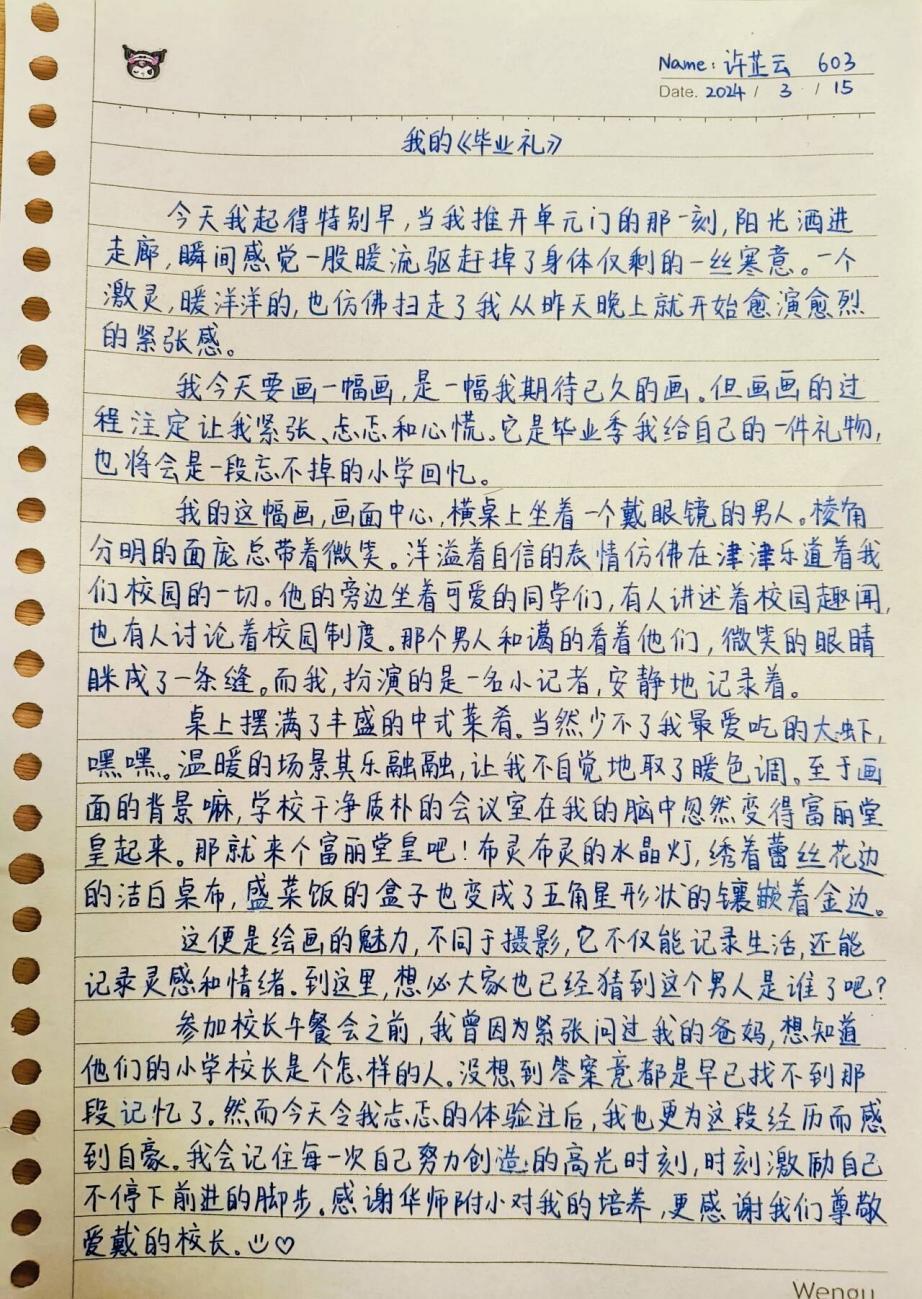 Name: 许芷云 603
Date. 2024 / 3 / 15
我的《毕业礼》
今天我起得特别早,当我推开单元门的那一刻,阳光洒进
走廊,瞬间感觉一股暖流驱赶掉了身体仅剩的一丝寒意。一个
激灵,暖洋洋的,也仿佛扫走了我从昨天晚上就开始愈演愈烈
的紧张感。
我今天要画一幅画,是一幅我期待已久的画。但画画的过
程注定让我紧张、忐忑和心慌。它是毕业季我给自己的一件礼物,
也将会是一段忘不掉的小学回忆。
我的这幅画,画面中心,横桌上坐着一个戴眼镜的男人。棱角
分明的面庞总带着微笑。洋溢着自信的表情仿佛在津津乐道着我
们校园的一切。他的旁边坐着可爱的同学们,有人讲述着校园趣闻,
也有人讨论着校园制度。那个男人和蔼的看着他们,微笑的眼睛
眯成了一条缝。而我,扮演的是一名小记者,安静地记录着。
桌上摆满了丰盛的中式菜肴。当然少不了我最爱吃的大虾,
嘿嘿。温暖的场景其乐融融,让我不自觉地取了暖色调。至于画
面的背景嘛,学校干净质朴的会议室在我的脑中忽然变得富丽堂
皇起来。那就来个富丽堂皇吧!布灵布灵的水晶灯,绣着蕾丝花边
的洁白桌布,盛菜饭的盒子也变成了五角星形状的镶嵌着金边。
这便是绘画的魅力,不同于摄影,它不仅能记录生活,还能
记录灵感和情绪.到这里,想必大家也已经猜到这个男人是谁了吧?
参加校长午餐会之前,我曾因为紧张问过我的爸妈,想知道
他们的小学校长是个怎样的人。没想到答案竟都是早已找不到那
段记忆了。然而今天令我忐忑的体验过后,我也更为这段经历而感
到自豪。我会记住每一次自己努力创造的高光时刻,时刻激励自己
不停下前进的脚步。感谢华师附小对我的培养,更感谢我们尊敬
爱戴的校长。
Wengu